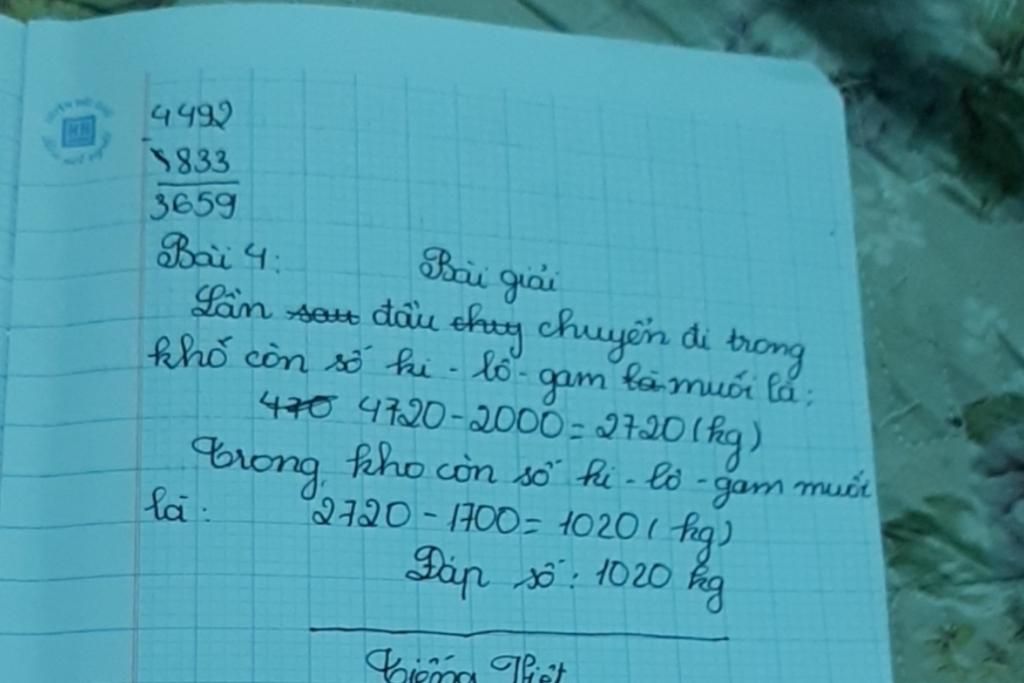 4492
-
833
3659
Bài 4: Bài giải
Lần sau đầu chuy chuyển đi trong
khố còn số ki-lô-gam là muối là:
470 4720-2000=2720(kg)
Trong kho còn số ki-lô-gam muối
là: 2720-1700=1020(kg)
Đáp số: 1020 kg
Tiếng Việt